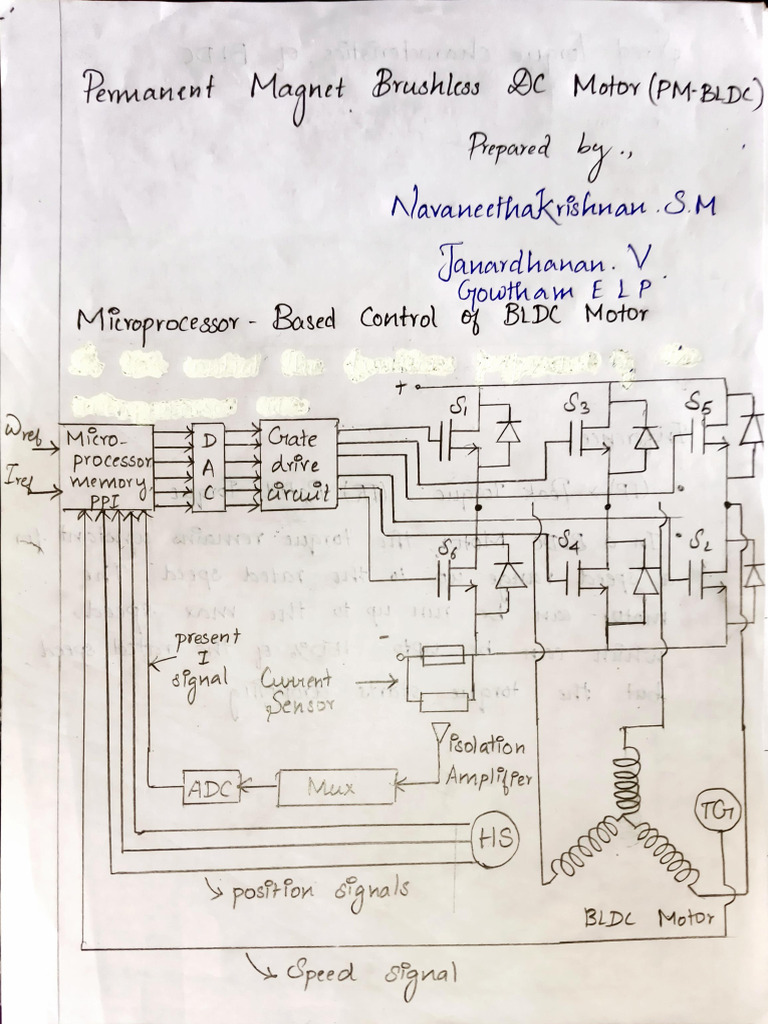 Permanent Magnet Brushless DC Motor (PM-BLDC)
Prepared by.,
NavaneethaKrishnan . S.M
Janardhanan. V.
Gowtham E L P
Microprocessor - Based Control of BLDC Motor
+
S1
S3
S5
ωref
Iref
Micro-
processor
memory
PPI
D
A
C
Gate
drive
circuit
S6
S4
S2
-
present
I
signal
Current
Sensor
isolation
Amplifier
ADC
Mux
HS
TG
position signals
BLDC Motor
Speed signal